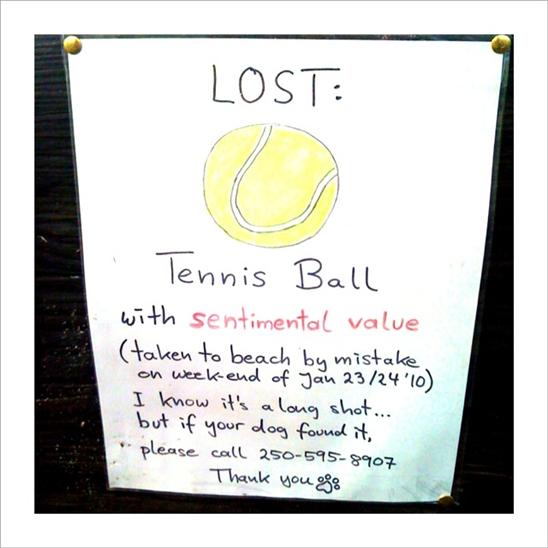 LOST:
Tennis Ball
with sentimental value
(taken to beach by mistake
on week-end of Jan 23/24 '10)
I know it's a long shot...
but if your dog found it,
please call 250-595-8907
Thank you